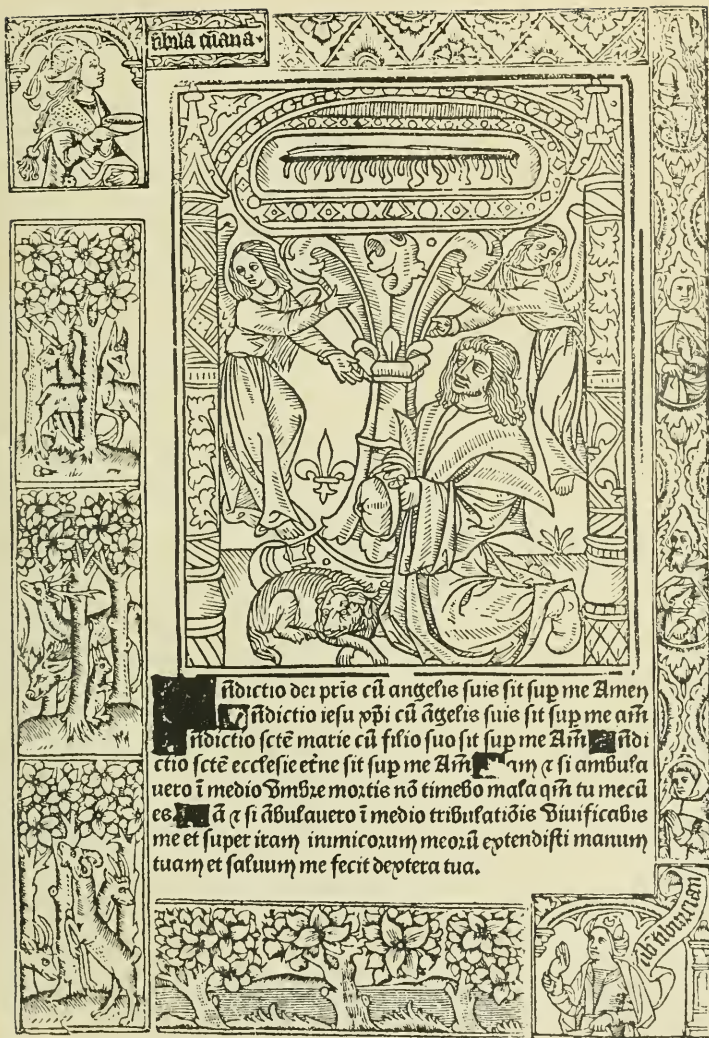 sibila cũana
ñdictio dei pris cũ angelis suis sit sup me Amen
ñdictio iesu xp̃i cũ ãgelis suis sit sup me am̃
ñdictio sctẽ marie cũ filio suo sit sup me Am̃ ñdi
ctio sctẽ ecclesie etñe sit sup me Am̃ am ⁊ si ambula
uero ĩ medio vmbre mortis nõ timebo mala qm̃ tu mecũ
es ã ⁊ si ãbulauero ĩ medio tribulatiõis viuificabis
me et super iram inimicorum meorũ extendisti manum
tuam et saluum me fecit dextera tua.